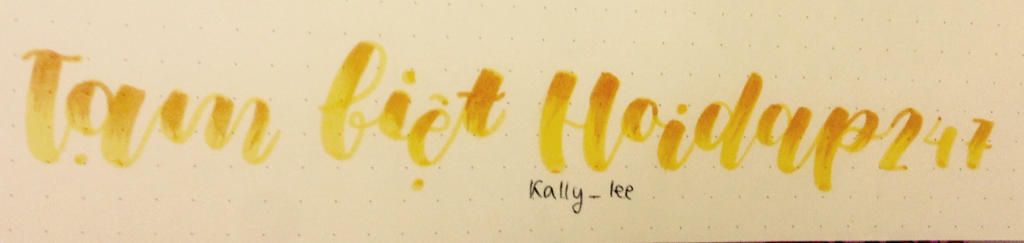 Tạm biệt Hoidap247
Kally_lee